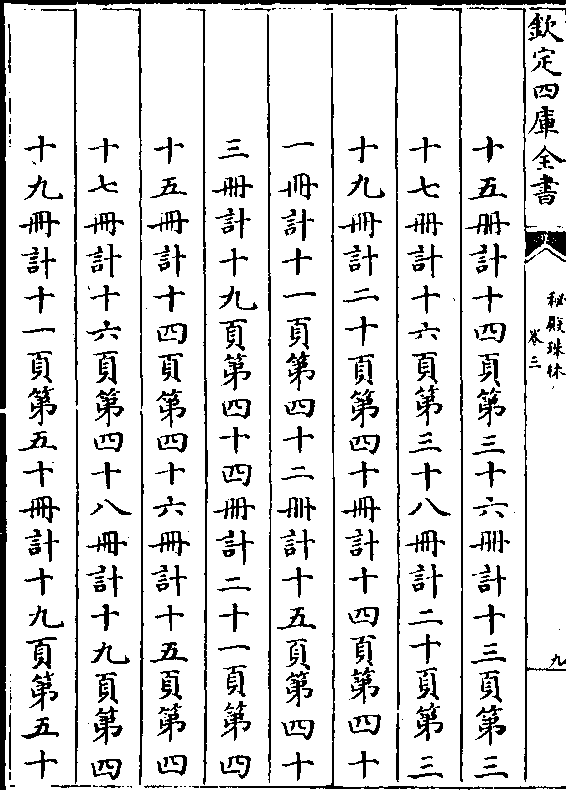 欽定四庫全書
秘殿珠林
卷三
九
十五册計十四頁第三十六册計十三頁第三
十七册計十六頁第三十八册計二十頁第三
十九册計二十頁第四十册計十四頁第四十
一册計十一頁第四十二册計十五頁第四十
三册計十九頁第四十四册計二十一頁第四
十五册計十四頁第四十六册計十五頁第四
十七册計十六頁第四十八册計十九頁第四
十九册計十一頁第五十册計十九頁第五十